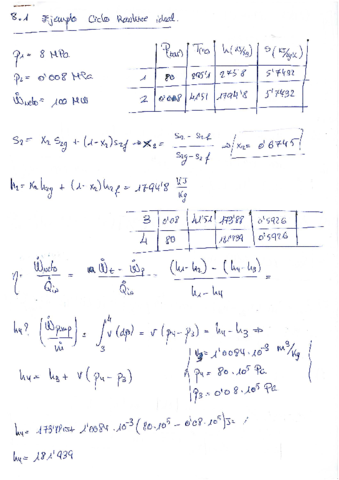 8.1 Ejemplo Ciclo Rankine ideal.
p₁ = 8 MPa
p₂ = 0'008 MPa
Ẇciclo = 100 MW
P(bar) T(ºC) h (kJ/kg) s (kJ/kgK)
1 80 295'1 2758 5'7432
2 0'08 41'51 1794'8 5'7432
s₂ = x₂ s₂g + (1-x₂) s₂f → x₂ = (s₂ - s₂f)/(s₂g - s₂f) → x₂ = 0'6745
h₂ = x₂ h₂g + (1-x₂) h₂f = 1794'8 kJ/kg
3 0'08 41'51 173'88 0'5926
4 80 181'939 0'5926
η = Ẇciclo/Q̇in = (Ẇt - Ẇp)/Q̇in = ((h₁-h₂) - (h₄-h₃))/(h₁-h₄) =
h₄? (Ẇpump/ṁ) = ∫₃⁴ v(dp) = v (p₄ - p₃) = h₄ - h₃ ⇒
v₃ = 1'0084·10⁻³ m³/kg
h₄ = h₃ + v (p₄ - p₃)
p₄ = 80·10⁵ Pa
p₃ = 0'08·10⁵ Pa
h₄ = 173'88 + 1'0084·10⁻³ (80·10⁵ - 0'08·10⁵) =
h₄ = 181'939